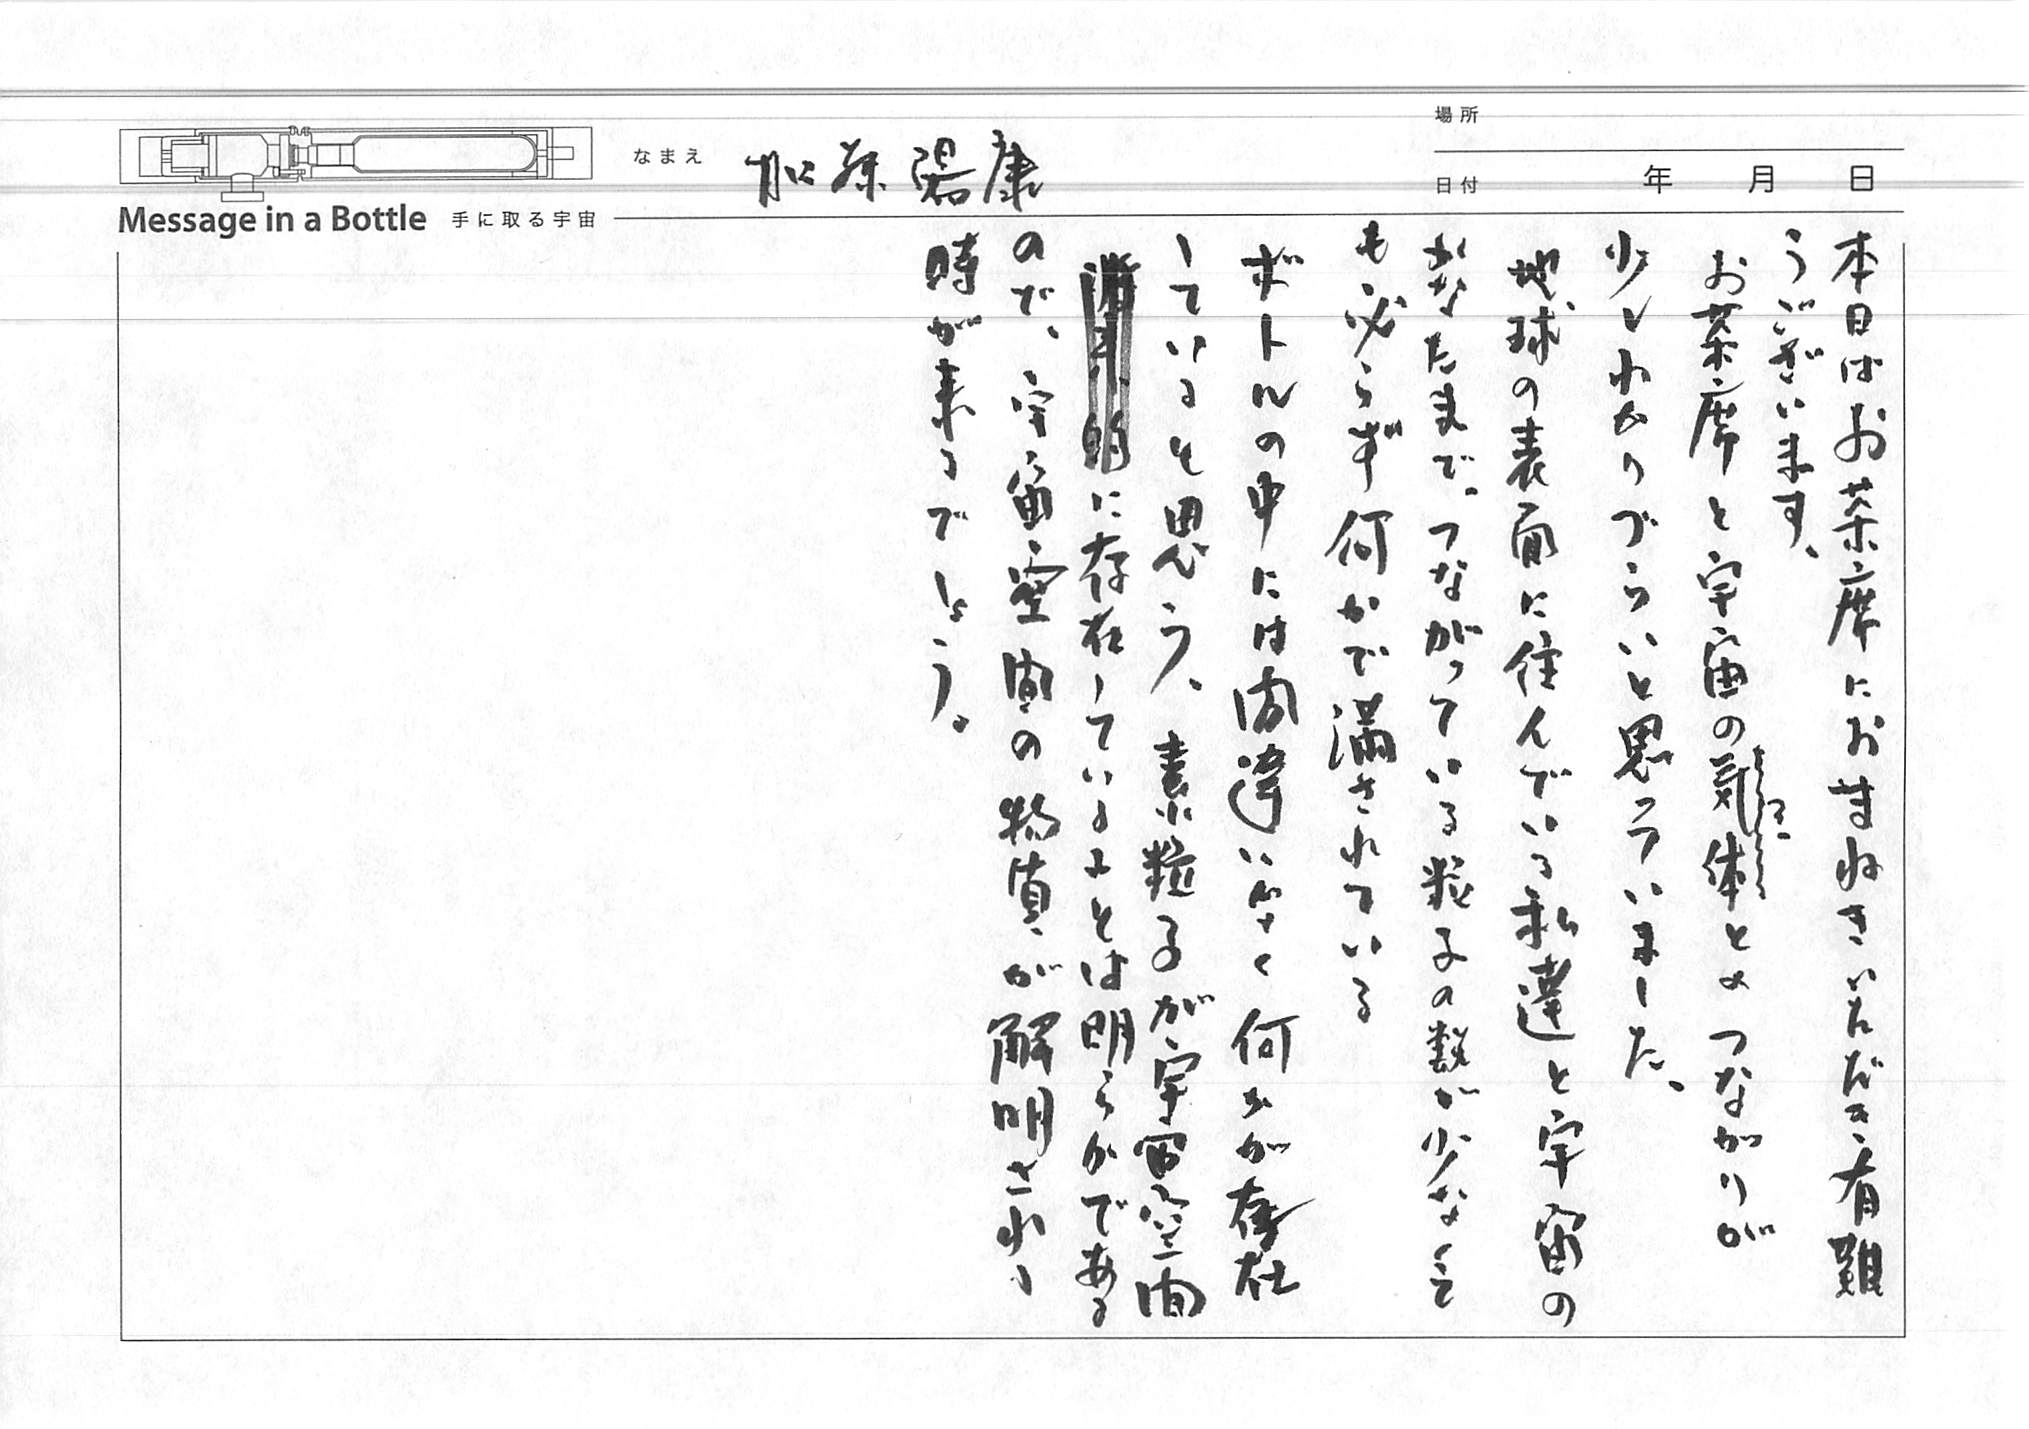 場所
なまえ 加藤陽康
日付 年 月 日
Message in a Bottle 手に取る宇宙
本日はお茶席におまねきいただき、有難
うございます。
お茶席と宇宙の気体とのつながりが
少しわかりづらいと思ういました。
地球の表面に住んでいる私達と宇宙の
かなたまで、つながっている粒子の数が少なくと
も必らず何かで満されている
ボトルの中には間違いなく何かが存在
していると思う、素粒子が宇宙空間
に存在していることは明らかである
ので、宇宙空間の物質が解明される
時が来るでしょう。